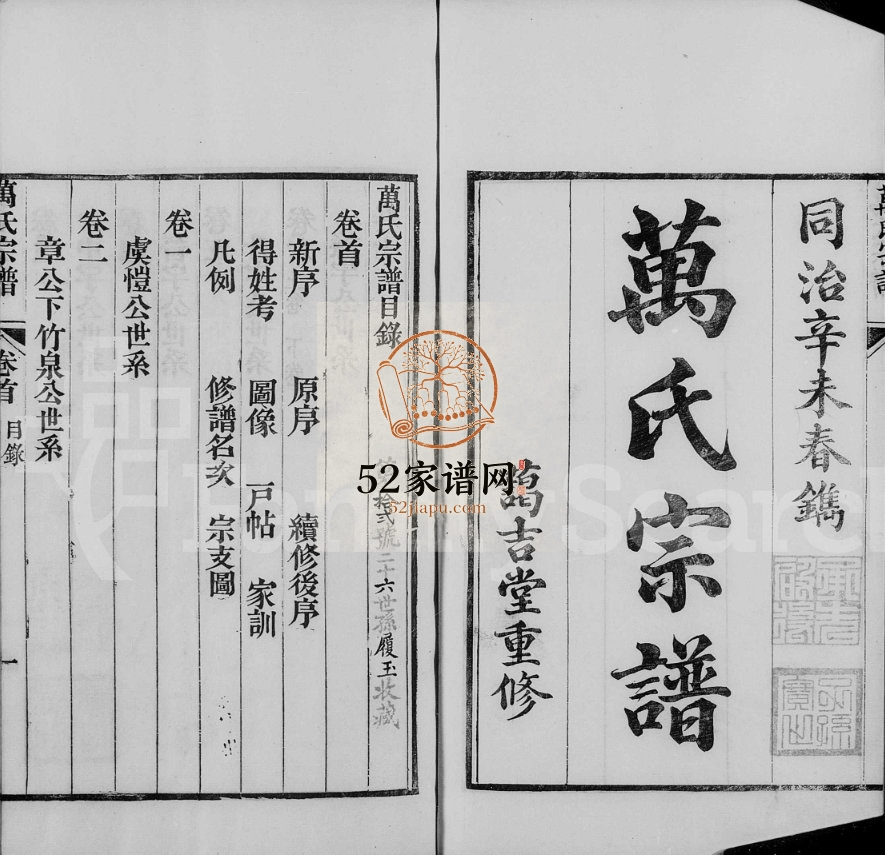 萬氏宗譜
同治辛未春鐫
萬氏宗譜
萬吉堂重修
萬氏宗譜目錄
拾弍號二十六世孫履玉收藏
卷首
新序 原序 續修後序
得姓考 圖像 戸帖 家訓
凡例 修譜名次 宗支圖
卷一
虞愷公世系
卷二
章公下竹泉公世系
萬氏宗譜 卷首 目錄 一
52家谱网
52jiapu.com
FamilySearch